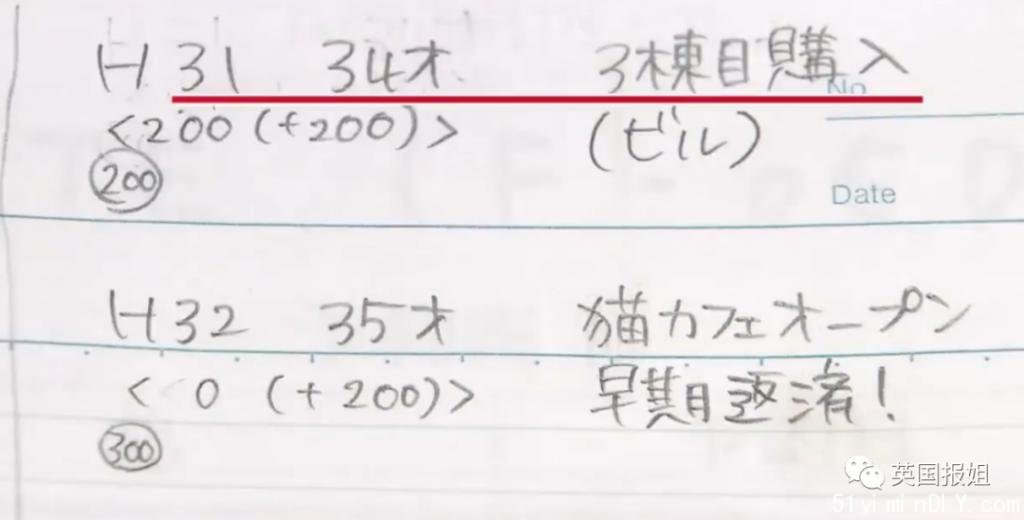 H31 34才 3棟目購入
No
<200 (+200)> (ビル)
200
Date
H32 35才 猫カフェオープン
< 0 (+200)> 早期返済!
300
英国报姐
51yiminDIY.com